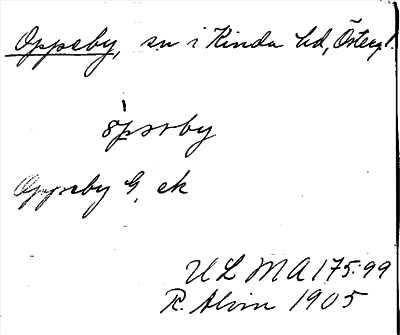 Oppeby, sn i Kinda hd, Östergl.
öpsoby
Oppeby G, ek
ULMA 175:99
R. Alvin 1905